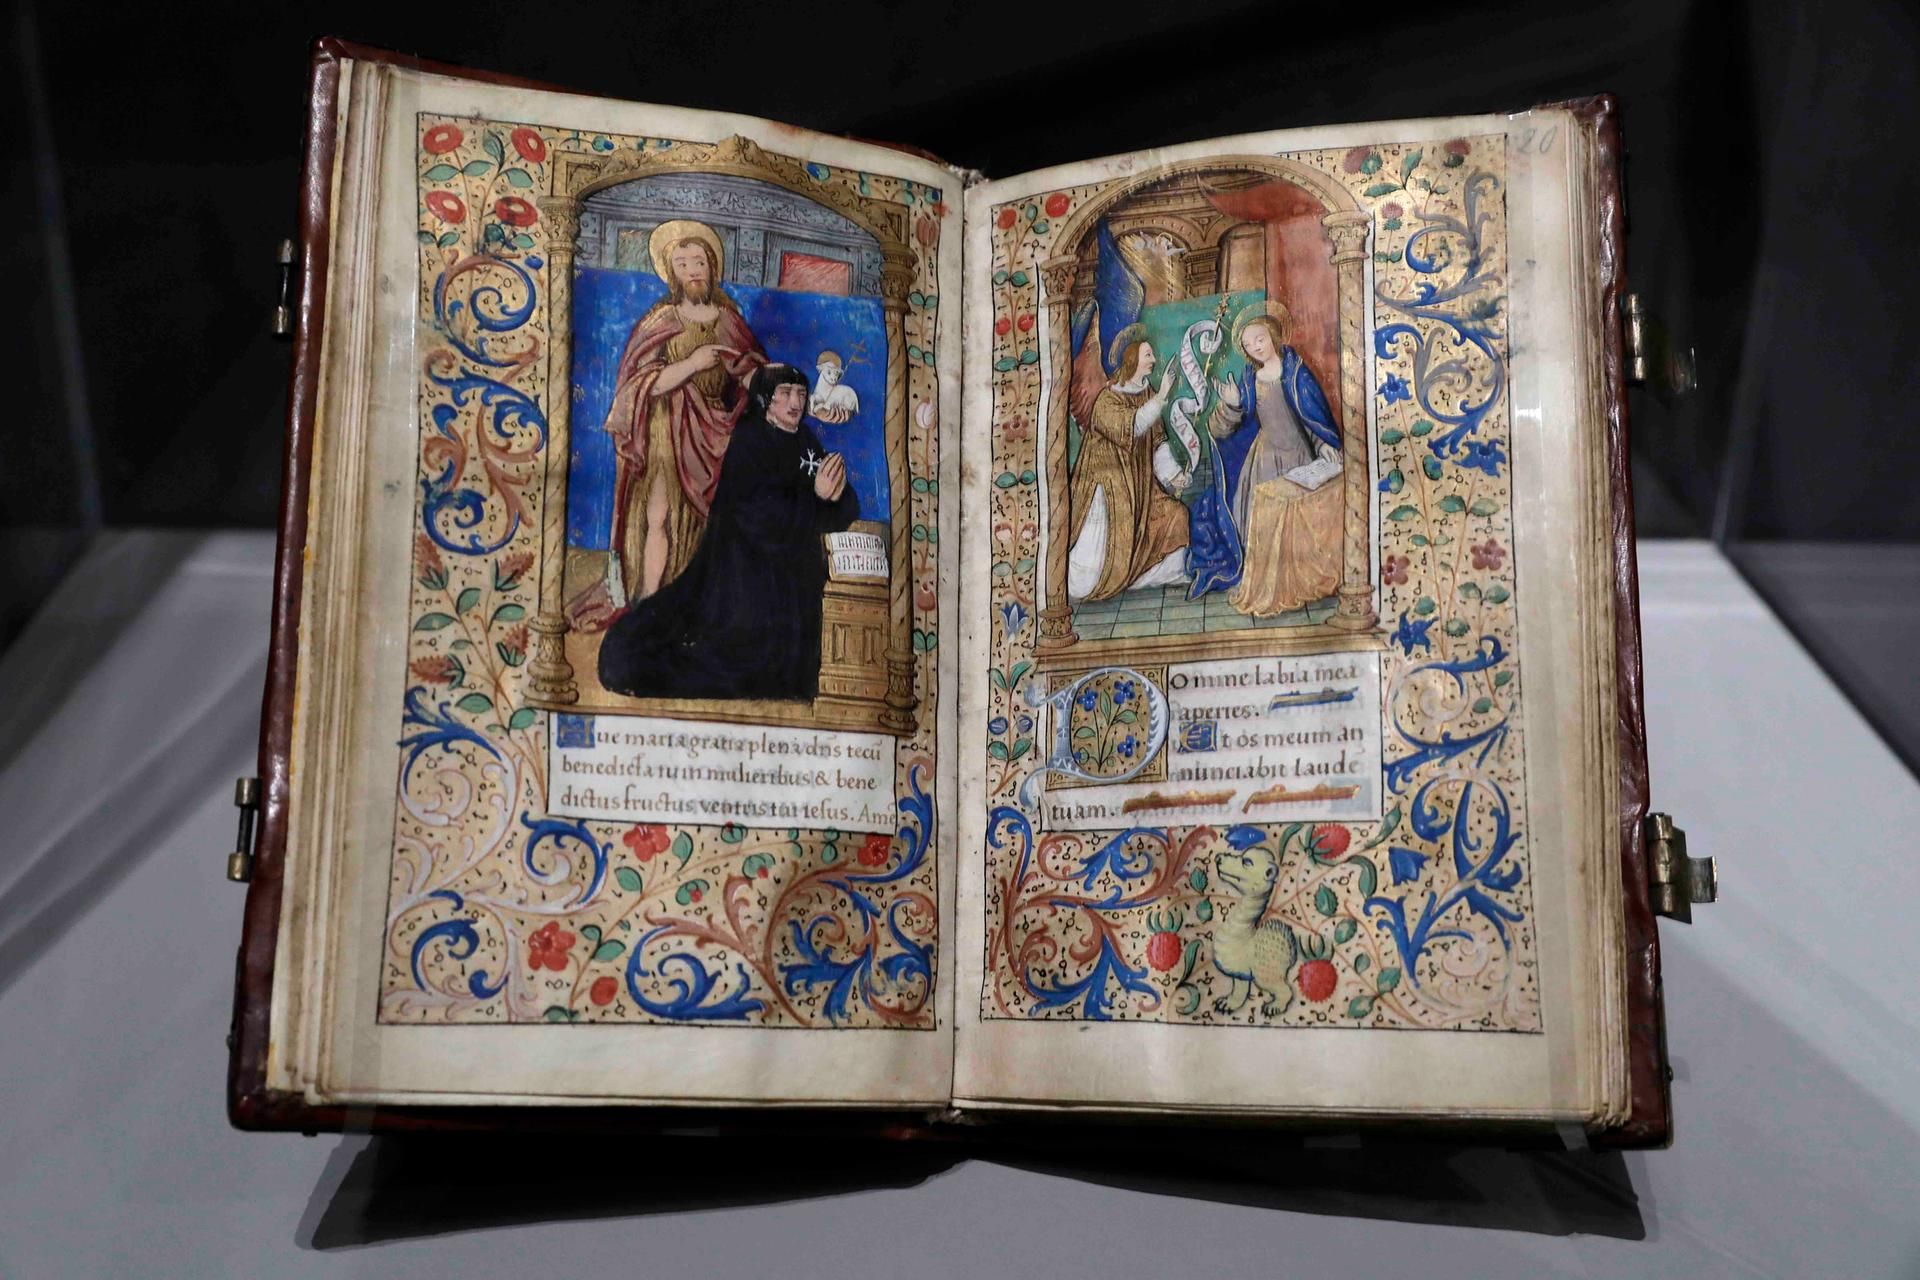 Aue maria gratia plena dn̄s tecū
benedicta tu in mulieribus & bene
dictus fructus ventris tui iesus. Amē
20
Domine labia mea
aperies.
Et os meum an
nunciabit laudē
tuam.